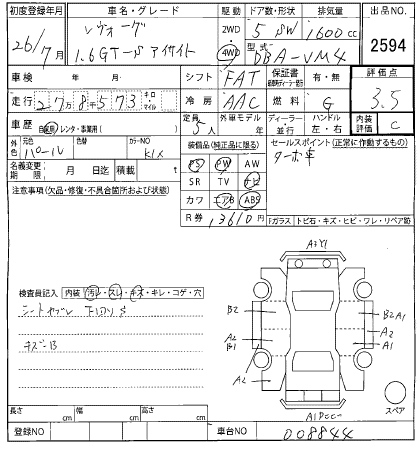 初度登録年月 車名・グレード 駆動 ドア数・形状 排気量 出品NO.
26/7月 レヴォーグ 1.6GT-S アイサイト 2WD 4WD 5 SW 1600cc 2594
型式 DBA-VM4
車検 年 月 シフト FAT 保証書 有・無 評価点 3.5
走行 27万8千573キロ マイル 冷房 AAC 燃料 G
車歴 自家用・レンタ・事業用( ) 定員 5人 外車モデル 年 ディーラー・並行 ハンドル 左・右 内装評価 C
外色 元色 パール 色替 カラーNO K1X 装備品(純正品に限る) セールスポイント(正常に作動するもの)
PS PW AW ターボ車
名義変更期限 月 日迄 積載 t SR TV ナビ
注意事項(欠品・修復・不具合箇所および状態) カワ エアB ABS
R券 13610円 Fガラス トビ石・キズ・ヒビ・ワレ・リペア跡
A3Y1
B2 B2A1
A2 B1 A2 A1
A2
検査員記入 内装 汚レ・スレ・キズ・キレ・コゲ・穴
キズ・B
スペア
長さ cm 幅 cm 高さ cm
登録NO 車台NO 008844